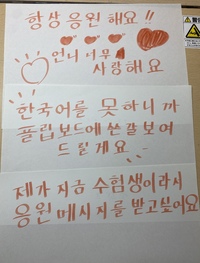 항상 응원 해요 !!
언니 너무
사랑해요
한국어를 못 하니까
플립보드에 쓴걸 보여
드릴게요
제가 지금 수험생이라서
응원 메시지를 받고싶어요